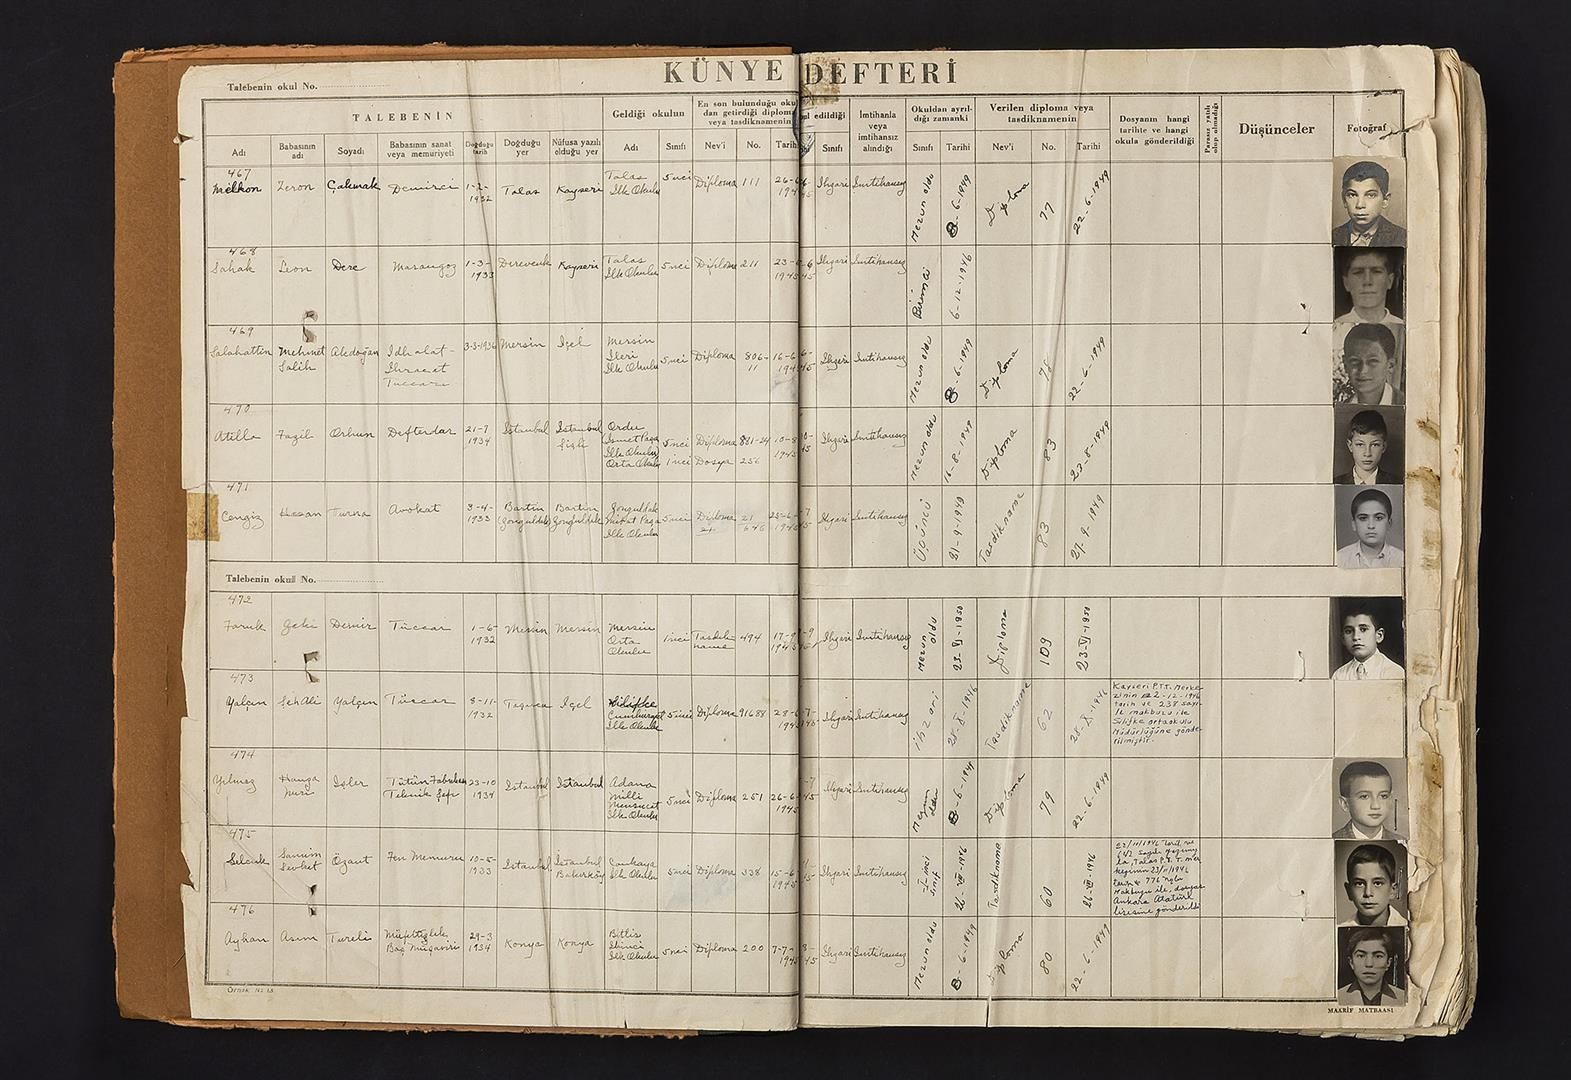 KÜNYE DEFTERİ
Talebenin okul No.
TALEBENİN
Geldiği okulun
En son bulunduğu okul
dan getirdiği diploma
veya tasdiknamenin
edildiği
İmtihanla
veya
imtihansız
alındığı
Okuldan ayrıl-
dığı zamanki
Verilen diploma veya
tasdiknamenin
Dosyanın hangi
tarihte ve hangi
okula gönderildiği
Parasız yatılı
olup olmadığı
Düşünceler
Fotoğraf
Adı
Babasının
adı
Soyadı
Babasının sanat
veya memuriyeti
Doğduğu
tarih
Doğduğu
yer
Nüfusa yazılı
olduğu yer
Adı
Sınıfı
Nev'i
No.
Tarih
Sınıfı
Sınıfı
Tarihi
Nev'i
No.
Tarihi
467
Melkon Zeron Çakmak Demirci 1-2-
1932
Talas Kayseri
Talas
İlk Okulu
5nci Diploma 111 26-6
194
İhzari İmtihansız
Mezun oldu
8-6-1949
Diploma
77
22-6-1949
468
Sahak Leon Dere Marangoz 1-3-
1933
Derevenk Kayseri
Talas
İlk Okulu
5nci Diploma 211 23-
1945
İhzari İmtihansız
Birinci
6-12-1946
469
Salahattin
Mehmet
Salih
Akdoğan
İdhalat-
İhracat
Tüccarı
3-3-1936
Mersin İçel
Mersin
İleri
İlk Okulu
5nci Diploma 806-
11
16-6
194
İhzari İmtihansız
Mezun oldu
8-6-1949
Diploma
78
22-6-1949
470
Atilla Fazıl Orhun Defterdar 21-7
1934
İstanbul
İstanbul
Şişli
Ordu
İsmet Paşa
İlk Okulu
Orta Okulu
5nci
1inci
Diploma 881-24
Dosya 256
10-8
1945
İhzari İmtihansız
Mezun oldu
16-8-1949
Diploma
83
23-8-1949
471
Cengiz Hasan Turna Avokat 3-4-
1933
Bartın
(Zonguldak)
Bartın
Zonguldak
Zonguldak
Mitat Paşa
İlk Okulu
5nci Diploma 21
646
25-6-
1945
İhzari İmtihansız
Üçüncü
21-9-1949
Tasdikname
83
27-9-1949
Talebenin okul No.
472
Faruk Zeki Demir Tüccar 1-6-
1932
Mersin Mersin
Mersin
Orta
Okulu
1inci
Tasdik-
name
494
17-9
1945
İhzari İmtihansız
Mezun
oldu
23-VI-1950
Diploma
109
23-VI-1950
473
Yalçın Şeh Ali Yalçın Tüccar 8-11-
1932
Taşuca İçel
Silifke
Cumhuriyet
İlk Okulu
5inci Diploma 91688 28-6
1945
İhzari İmtihansız
İhzari
28-X-1946
Tasdikname
62
28-X-1946
Kayseri P.T.T. Merke-
zinin 2-12-1946
tarih ve 238 sayı-
lı makbuzu ile
Silifke ortaokulu
Müdürlüğüne gönde-
rilmiştir.
474
Yılmaz
Nuri
İşler
Tütün Fabrikası
Teknik Şefi
23-10
1934
İstanbul İstanbul
Adana
Milli
Mensucat
İlk Okulu
5nci Diploma 251 26-6-
1945
İhzari İmtihansız
Mezun
oldu
8-6-1949
Diploma
79
22-6-1949
475
Selcuk
Sanim
Sevket
Özant
Fen Memuru
10-5-
1933
İstanbul
İstanbul
Bakırköy
Çankaya
İlk Okulu
5nci Diploma 338 15-6
1945
İhzari İmtihansız
I-inci
sınıf
26-VIII-1946
Tasdikname
60
26-VIII-1946
22/11/1946 tarih ve
642 sayılı yazımız
la, Talas P.T.T. mer
kezinin 23/11/1946
tarih ve 776 No.lu
Makbuzu ile, dosyası
Ankara Atatürk
lisesine gönderildi
476
Ayhan Asım Tureli
Müfettişlik
Baş Müşaviri
29-3
1934
Konya Konya
Bitlis
İkinci
İlk Okulu
5nci Diploma 200 7-7-
1945
İhzari İmtihansız
Mezun oldu
8-6-1949
Diploma
80
22-6-1949
Örnek No 13
MAARİF MATBAASI